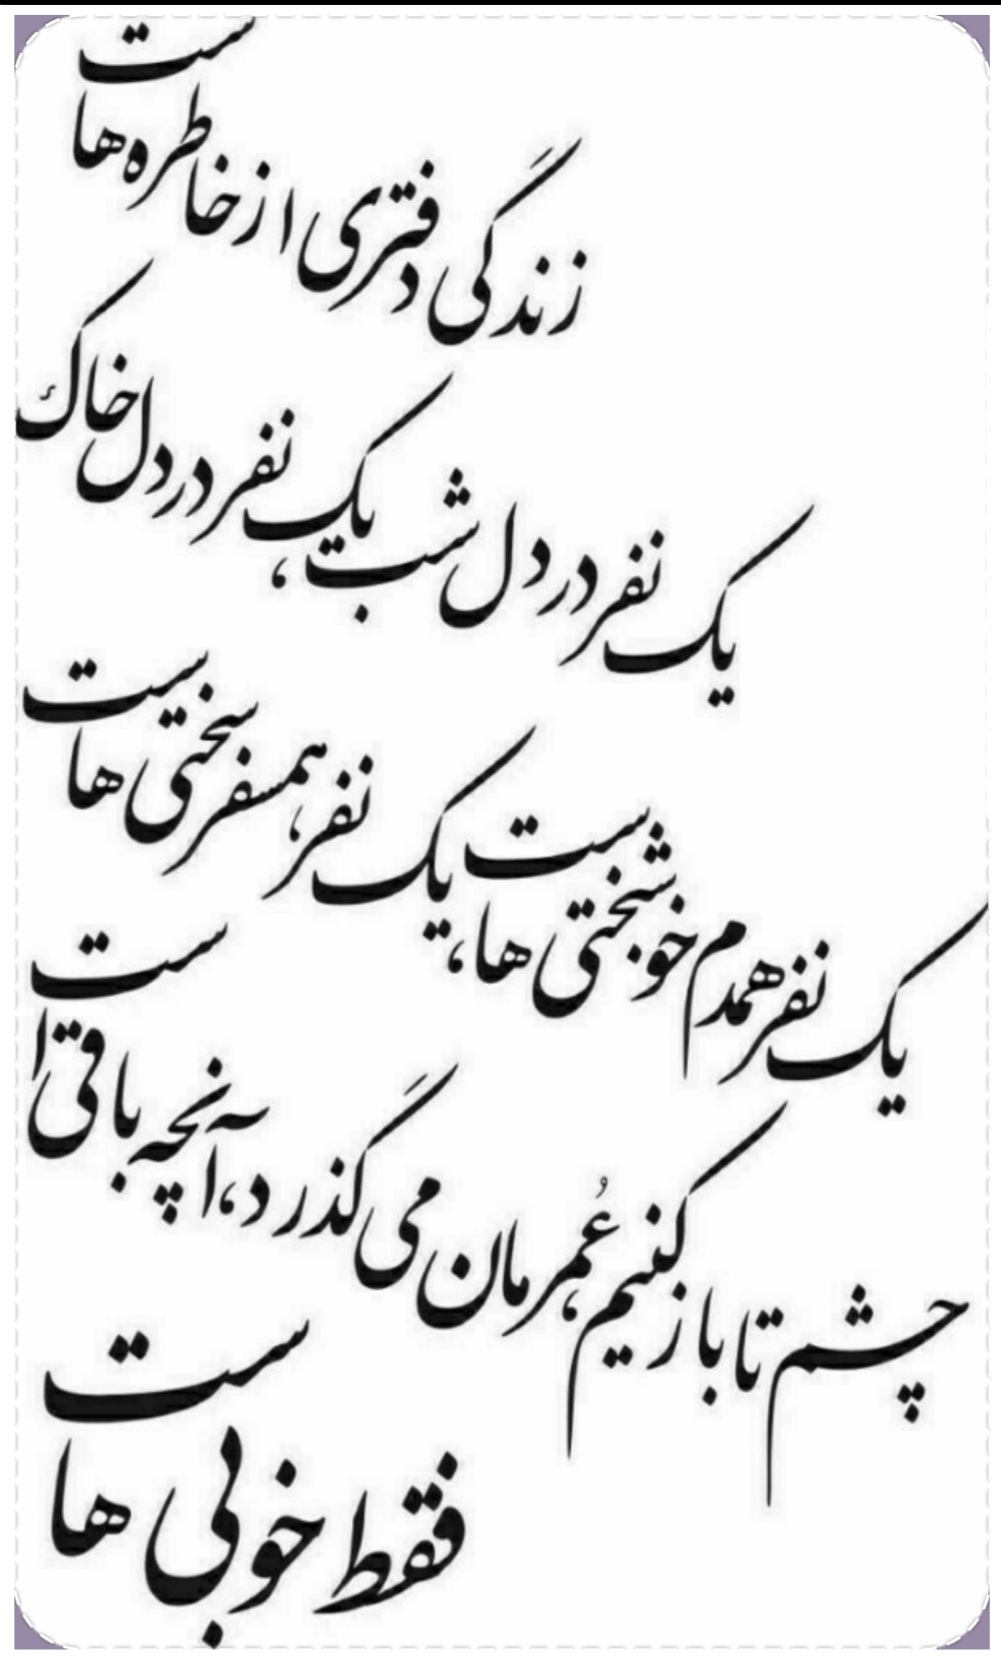 زندگی دفتری از خاطره هاست
یک نفر در دل شب، یک نفر در دل خاک
یک نفر همدم خوشبختی هاست، یک نفر همسفر سختی هاست
چشم تا باز کنیم عُمرمان می گذرد، آنچه باقی است
فقط خوبی هاست